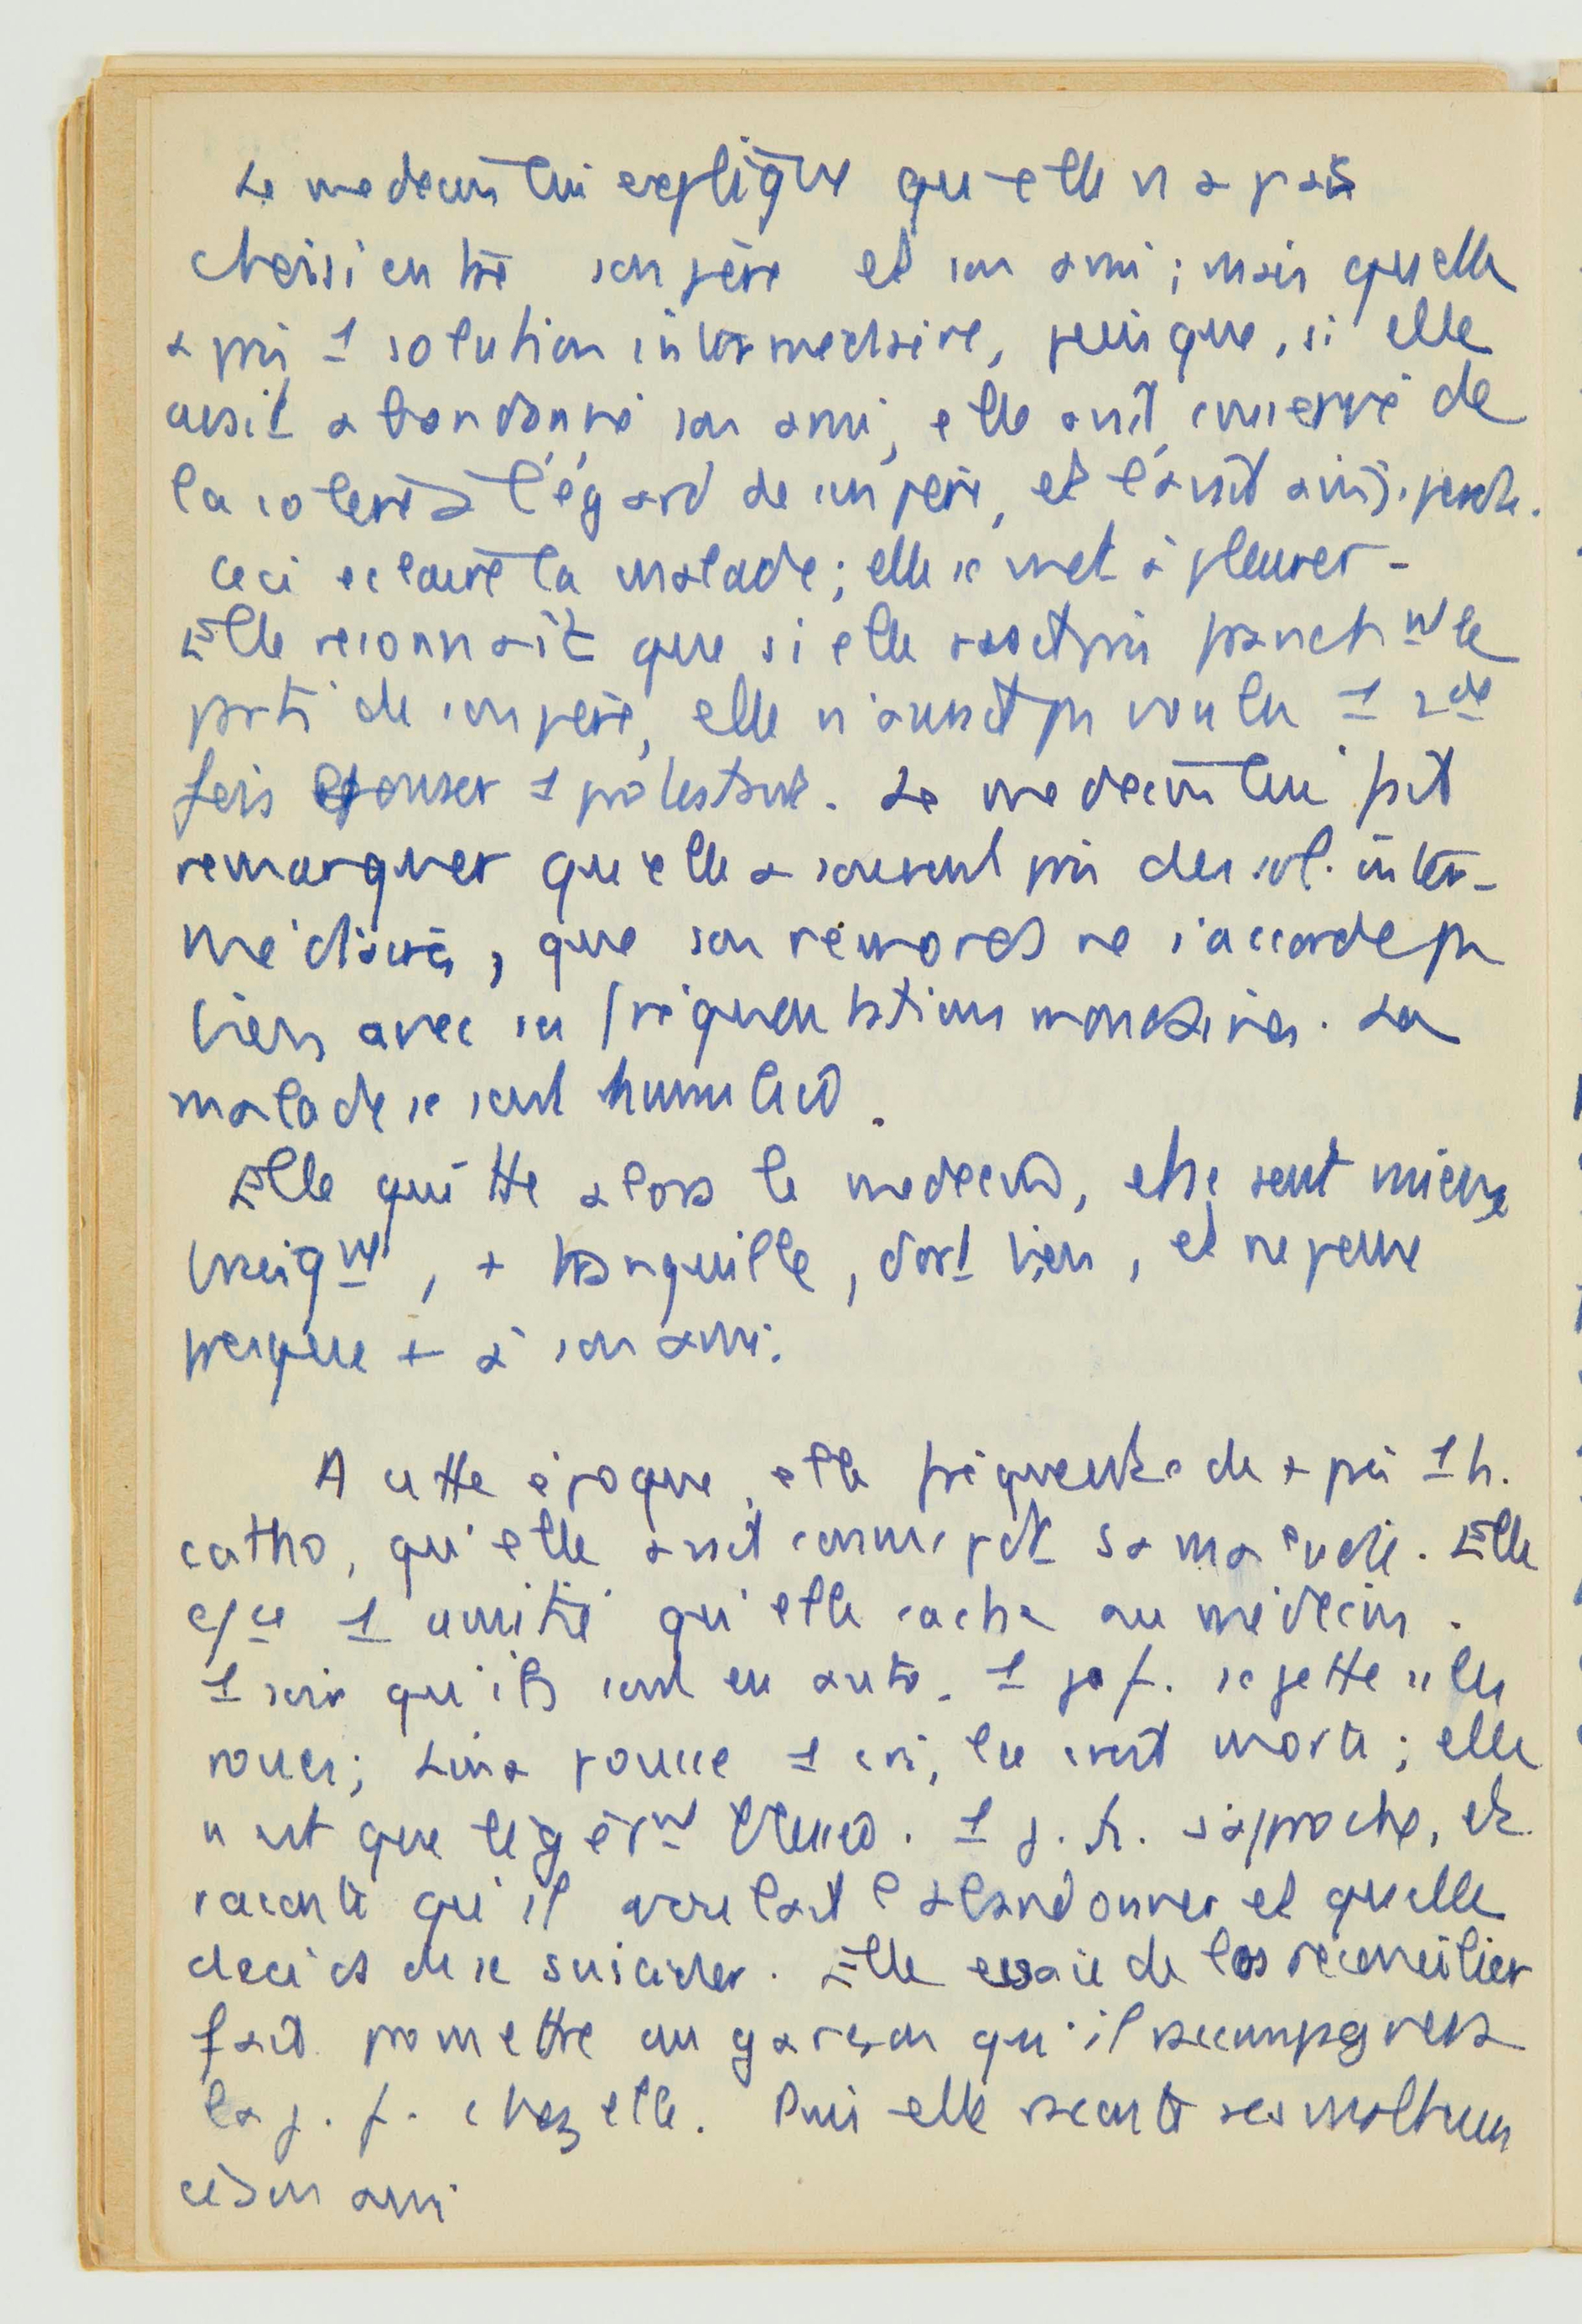 Le medecin lui explique qu'elle n'a pas
choisi entre son père et son ami ; mais qu'elle
a pris 1 solution intermediaire, puisque, si elle
avait abandonné son ami, elle avait conservé de
la colere à l'égard de son père, et l'avait
Ceci eclaire la malade ; elle se met à pleurer -
Elle reconnait que si elle avait pris franch nt le
parti de son père, elle n'aurait pas voulu 1 2de
fois epouser 1 protestant. Le medecin lui fait
remarquer qu'elle a souvent pris des sol. inter-
médiaires, que son remords ne s'accorde pas
bien avec ses fréquentations mondaines. La
malade se sent humiliée.
Elle quitte alors le medecin, et se sent mieux
physiq nt, + tranquille, dort bien, et ne pense
presque + à son ami.
A cette époque, elle fréquente de + près 1 h.
catho, qu'elle avait connu pdt sa maladie. Elle
a 1 amitié qu'elle cache au médecin.
1 soir qu'ils sont en auto, 1 j. f. se jette ss les
roues ; Lina pousse 1 cri, la croit morte ; elle
n'est que légèr nt blessée. 1 j. h. s'approche, et
raconte qu'il voulait l'abandonner et qu'elle
décida de se suicider. Elle essaie de les réconcilier
fait promettre au garçon qu'il raccompagnera
la j. f. chez elle. Puis elle raconte ses malheurs
à son ami